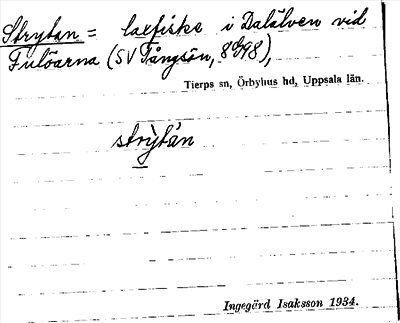 Strytan = laxfiske i Dalälven vid
Fulöarna (SV Fångsön, 8998),
Tierps sn, Örbyhus hd, Uppsala län.
strỳtán
Ingegärd Isaksson 1934.